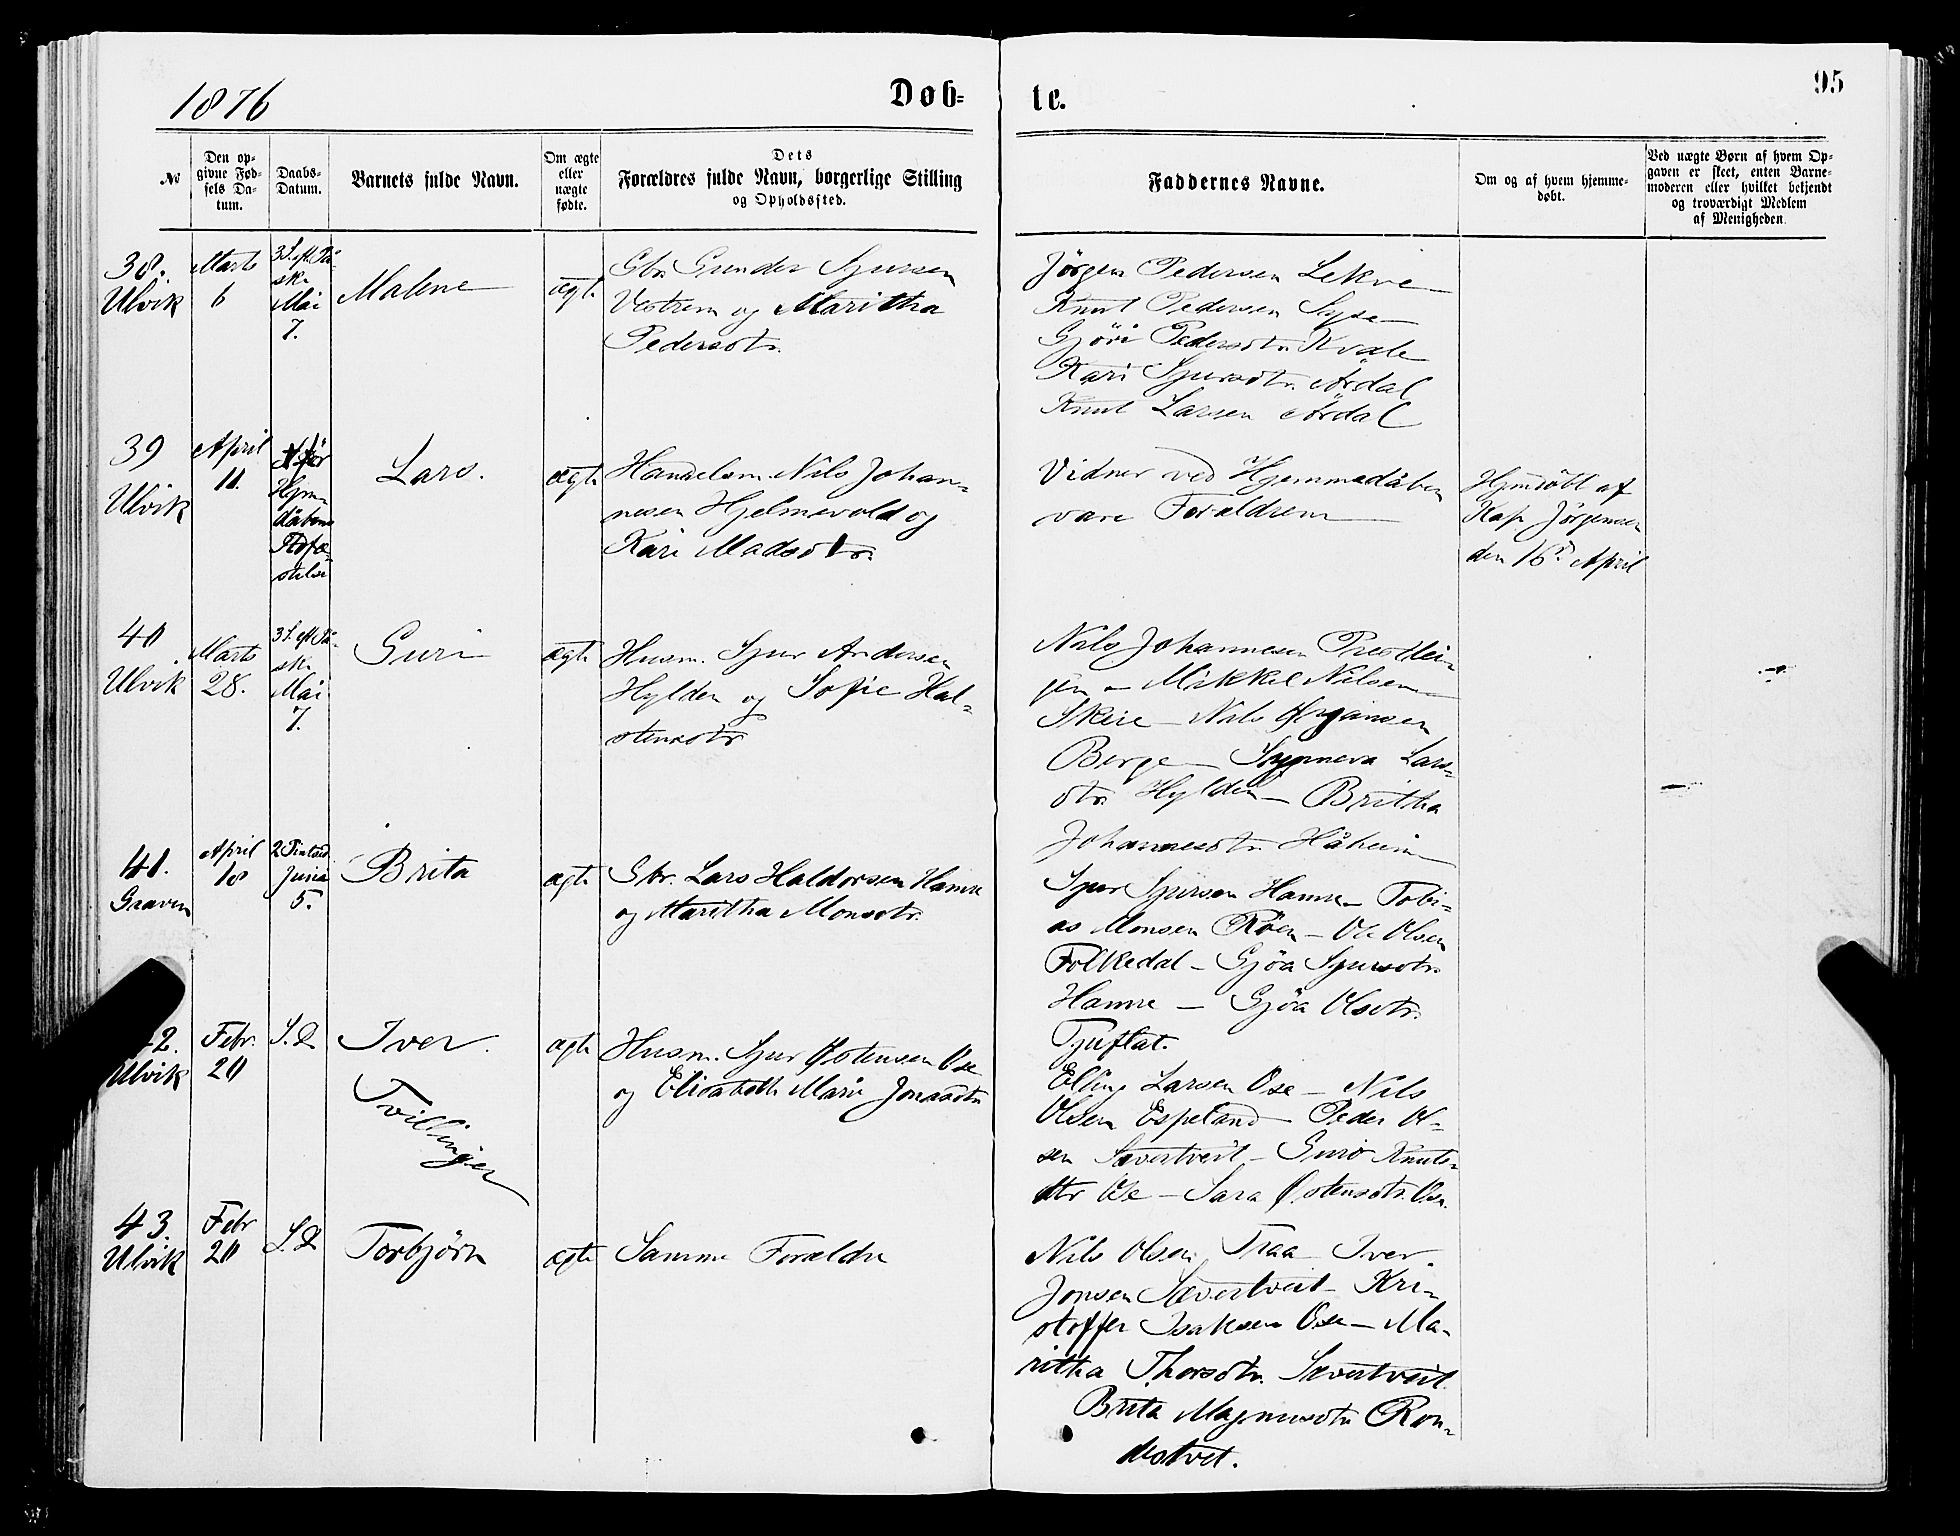 1876
Døb=
te.
95
No
Den op-
givne Fød-
sels Da-
tum.
Daabs-
Datum.
Barnets fulde Navn.
Om ægte
eller
uægte
fødte.
Dets
Forældres fulde Navn, borgerlige Stilling
og Opholdssted.
Faddernes Navne.
Om og af hvem hjemme-
døbt.
Ved uægte Børn af hvem Op-
gaven er skeet, enten Barne-
moderen eller hvilket bekjendt
og troværdigt Medlem
af Menigheden.
38.
Ulvik
Marts
6
3 S. eft. På-
ske
Mai
7.
Malene
ægte
Gbr. Gunder Sjursen
Vestrem og Maritha
Pedersdtr.
Jörgen Pedersen Lekve
Knut Pedersen Syse
Gjöri Pedersdtr. Kvale
Kari Sjursdtr. Årdal
Knut Larsen Årdal
39
Ulvik
April
11.
Hjem-
dåbens
Stadfæ-
stelse
Lars.
ægte
Handelsm. Nils Johan-
nesen Hjelmevold og
Kari Madsdtr.
Vidner ved Hjemmedåben
vare Forældrene
Hjmdöbt af
Kap. Jörgensen
den 16d. April
40
Ulvik
Marts
28.
3 S. eft. På-
ske
Mai
7.
Guri
ægte
Husm. Sjur Andersen
Hylden og Sofie Hal-
stensdtr
Nils Johannesen Presthei-
gen - Mikkel Nilsen
Skeie - Nils Ørjansen
Berge - Synneva Lars-
dtr. Hylden - Britha
Johannesdtr. Håheim
41.
Graven
April
18
2 Pintsed.
Juni
5.
Brita
ægte
Gbr. Lars Haldorsen Hamre
og Maritha Monsdtr.
Sjur Sjursen Hamre - Tobi-
as Monsen Röen - Ole Olsen
Folkedal - Gjöa Sjursdtr.
Hamre - Gjöa Olsdtr.
Tjuflat.
42.
Ulvik
Febr.
20
S. D.
Iver.
Tvillinger
ægte
Husm. Sjur Østensen Ose
og Elisabeth Marie Jonasdtr
Elling Larsen Ose - Nils
Olsen Espeland - Peder Ol-
sen Sævertveit - Guro Knuts-
dtr Ose - Sara Østensdtr. Ose.
43.
Ulvik
Febr
20
S. D.
Torbjörn
ægte
Samme Forældre
Nils Olsen Traa - Iver
Jonsen Sævertveit - Kri-
stoffer Isaksen Ose - Ma-
ritha Thorsdtr. Sævertveit
Brita Magnusdtr Ron-
destvet.